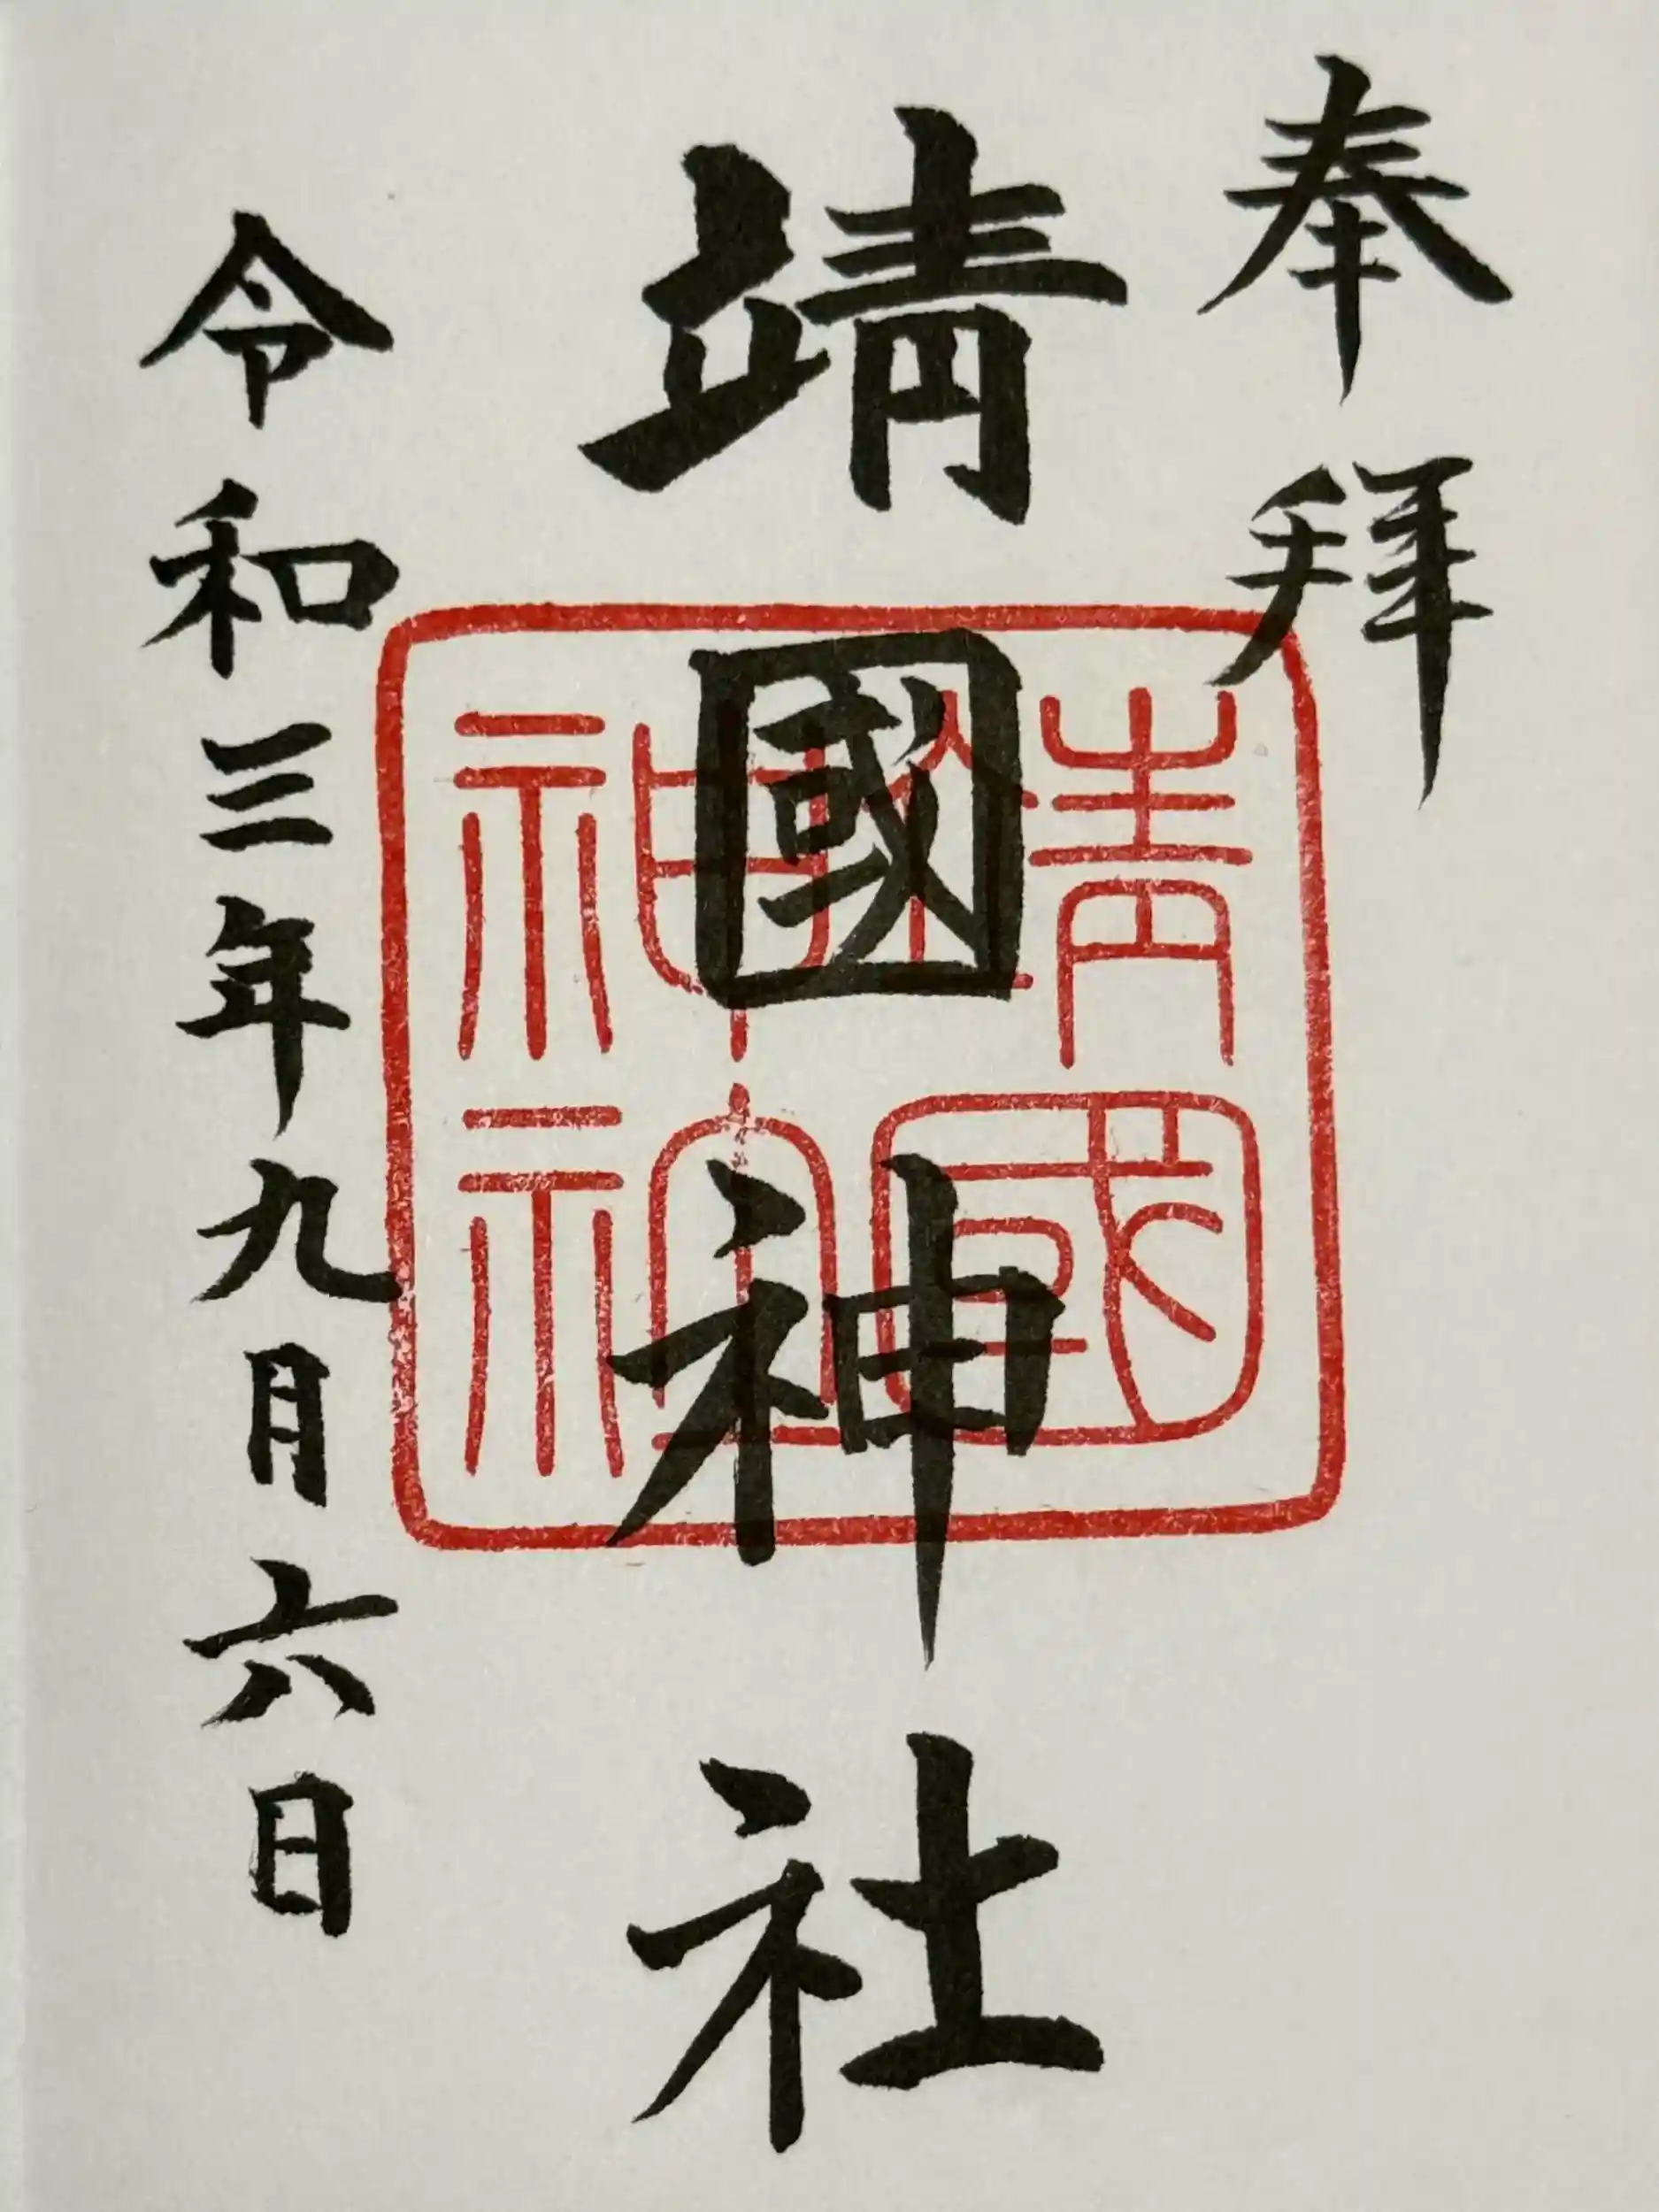 奉拜
靖國神社
令和三年九月六日
靖國
神社